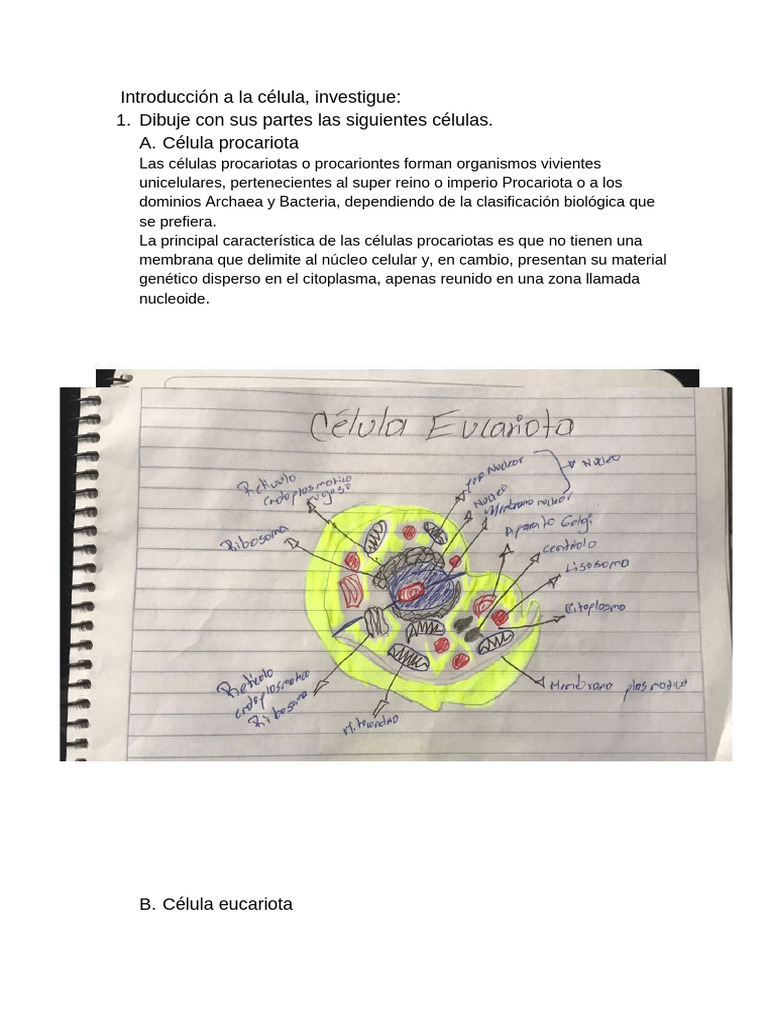 Introducción a la célula, investigue:
1. Dibuje con sus partes las siguientes células.
A. Célula procariota
Las células procariotas o procariontes forman organismos vivientes
unicelulares, pertenecientes al super reino o imperio Procariota o a los
dominios Archaea y Bacteria, dependiendo de la clasificación biológica que
se prefiera.
La principal característica de las células procariotas es que no tienen una
membrana que delimite al núcleo celular y, en cambio, presentan su material
genético disperso en el citoplasma, apenas reunido en una zona llamada
nucleoide.
Célula Eucariota
endoplasmatico
rugoso
Ribosoma
Nucleo
Nucleo
Membrana nuclear
Aparato Golgi
centriolo
Lisosoma
Citoplasma
Membrana plasmatica
Reticulo
endoplasmatico
Ribosoma
B. Célula eucariota